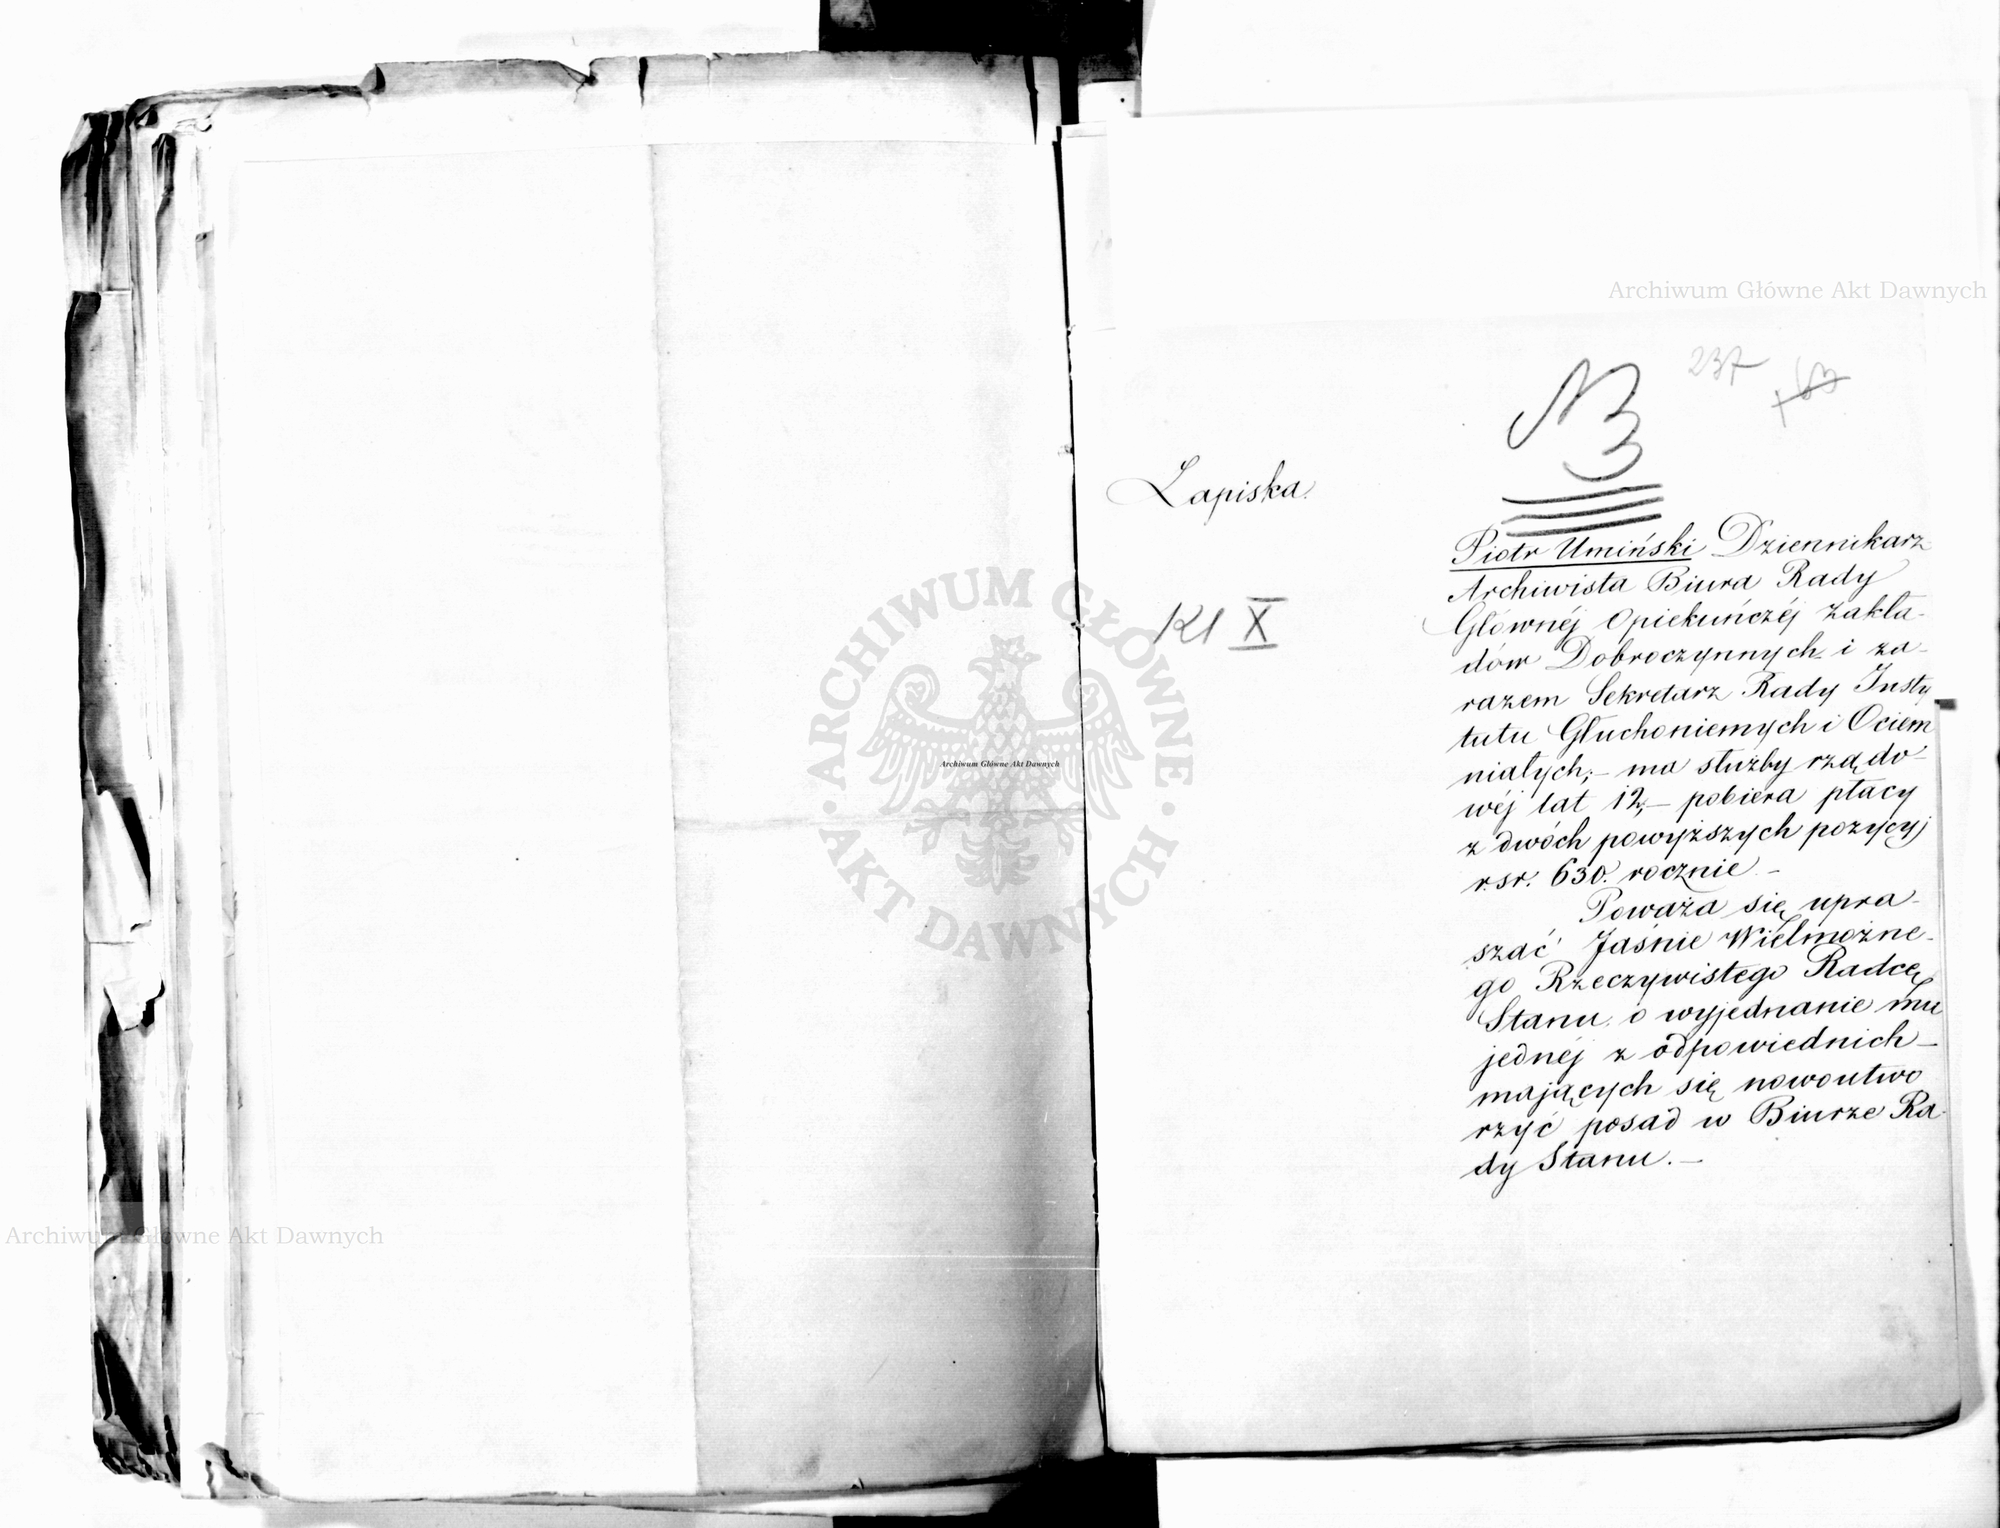 Archiwum Główne Akt Dawnych
237
63
NB
Zapiska.
Kl X
Piotr Umiński Dziennikarz
Archiwista Biura Rady
Głównéj Opiekuńczéj Zakła-
dów Dobroczynnych i za-
razem Sekretarz Rady Insty
tutu Głuchoniemych i Ociem
niałych; – ma służby rządo-
wéj lat 12, – pobiera płacy
z dwóch powyższych pozycyj
rsr. 630. rocznie. –
Poważa się upra-
szać Jaśnie Wielmożne-
go Rzeczywistego Radcę
Stanu o wyjednanie mu
jednéj z odpowiednich –
mających się nowoutwo
rzyć posad w Biurze Ra-
dy Stanu. –
ARCHIWUM GŁÓWNE
AKT DAWNYCH
Archiwum Główne Akt Dawnych
Archiwum Główne Akt Dawnych